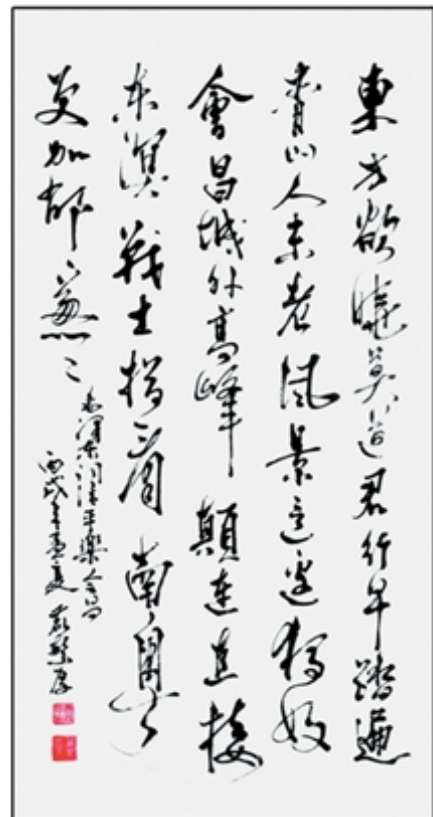 東方欲曉莫道君行早踏遍
青山人未老風景這邊獨好
會昌城外高峰顛連直接
东溟戰士指看南粤
更加郁〻葱〻
毛澤东词清平樂會昌
丙戌年孟夏